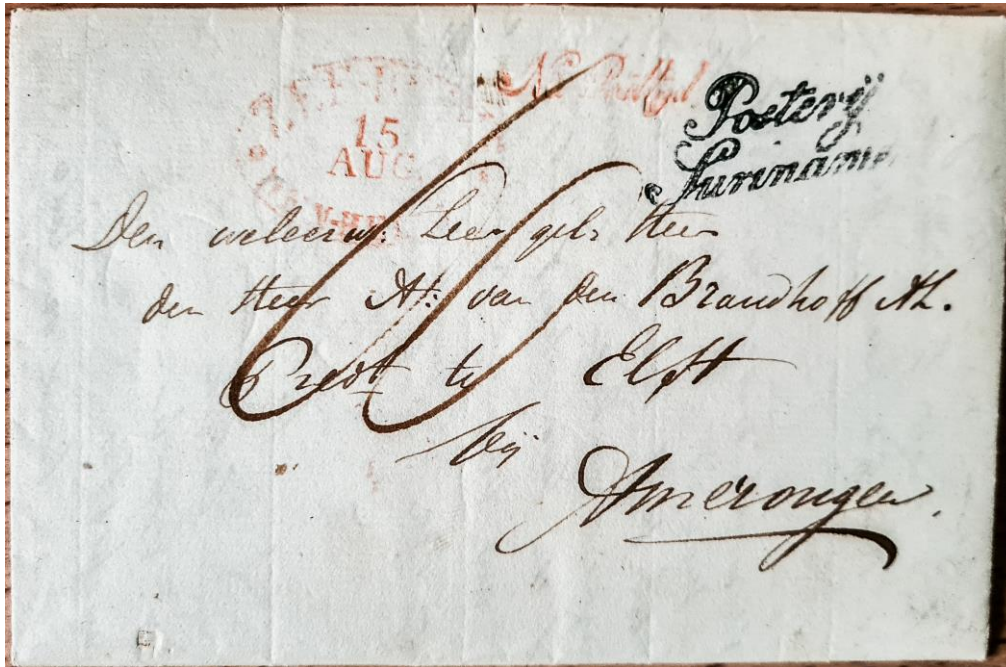 ZEEBRIEF
15
AUG
Na Posttyd
Posterÿ
Suriname
Den weleerw: Zeer gel: Heer
den Heer A: van den Brandhoff Az.
Predt te Elst
bÿ
Amerongen.